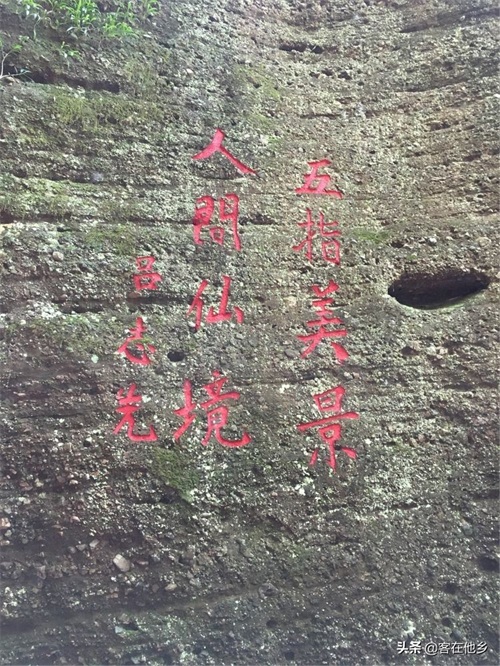 五指美景
人間仙境
呂志先
头条 @客在他乡